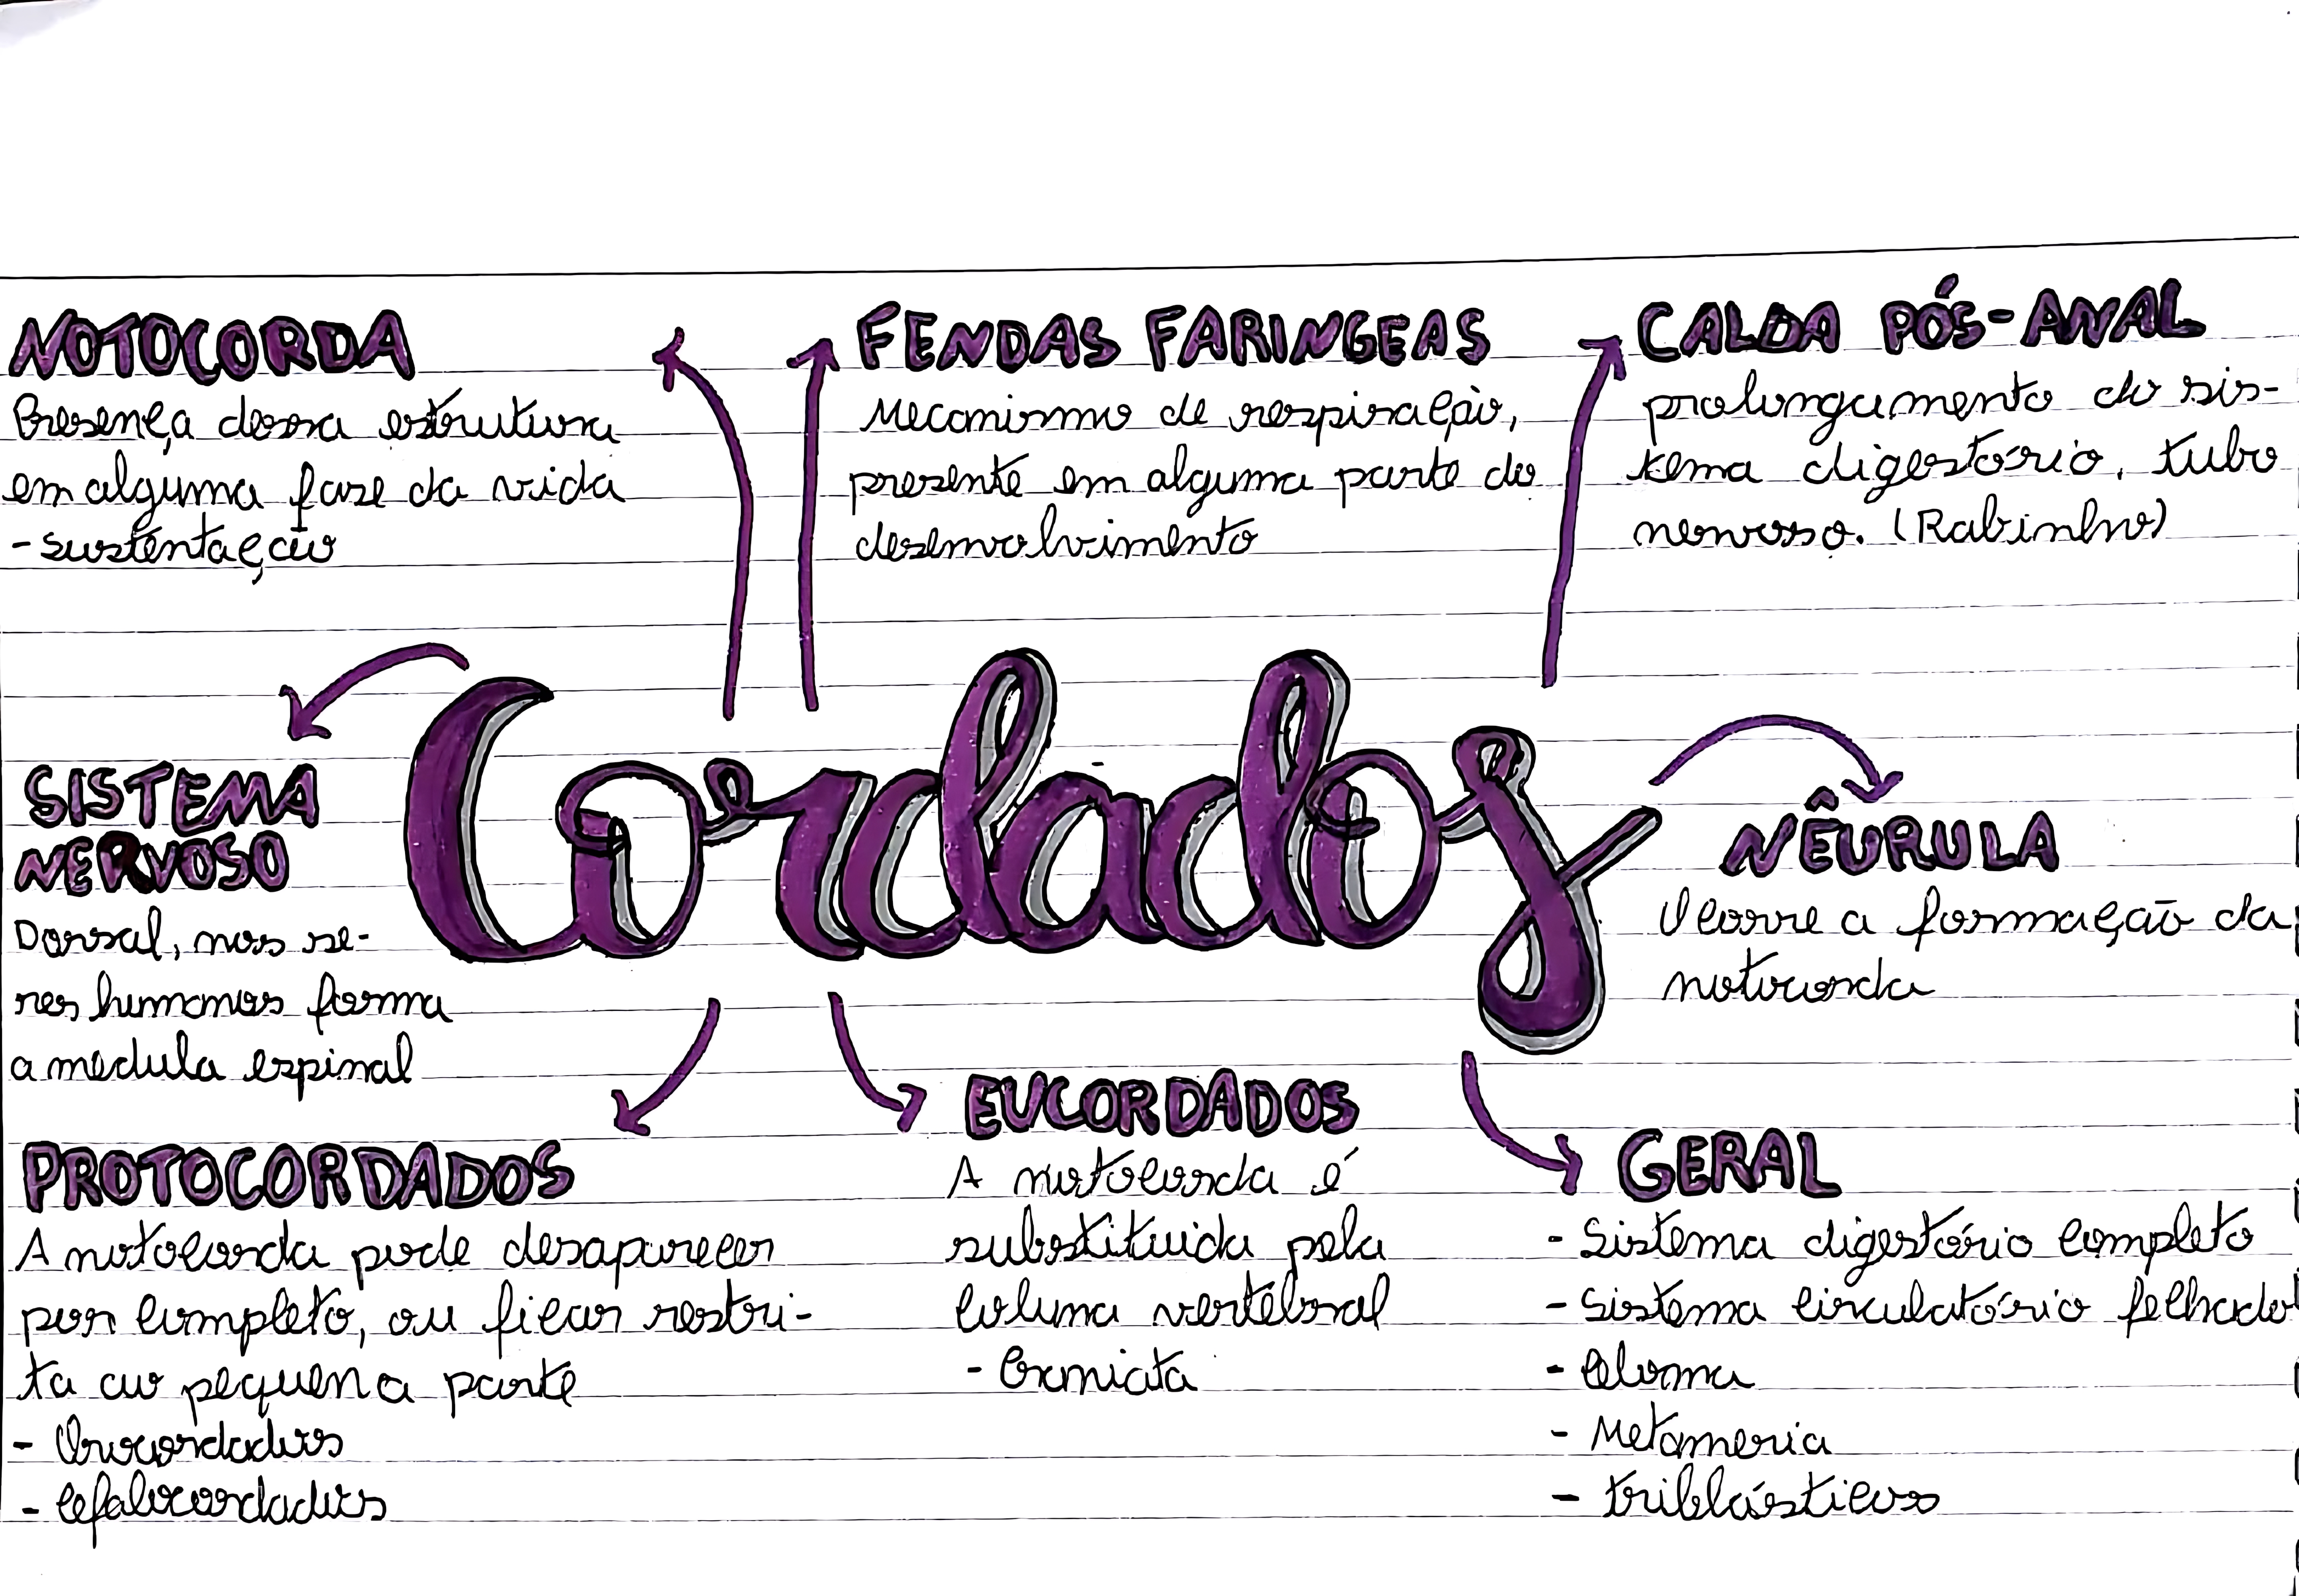 NOTOCORDA
Presença dessa estrutura
em alguma fase da vida
- sustentação
FENDAS FARINGEAS
Mecanismo de respiração,
presente em alguma parte do
desenvolvimento
CALDA PÓS-ANAL
prolongamento do sis-
tema digestório, tubo
nervoso. (Rabinho)
Cordados
SISTEMA
NERVOSO
Dorsal, nos se-
res humanos forma
a medula espinal
NÊURULA
Ocorre a formação da
notocorda
PROTOCORDADOS
A notocorda pode desaparecer
por completo, ou ficar restri-
ta ao pequena parte
- Urocordados
- Cefalocordados
EUCORDADOS
A notocorda é
substituida pela
coluna vertebral
- Craniata
GERAL
- Sistema digestório completo
- Sistema circulatório felhado
- Celoma
- Metameria
- triblásticos